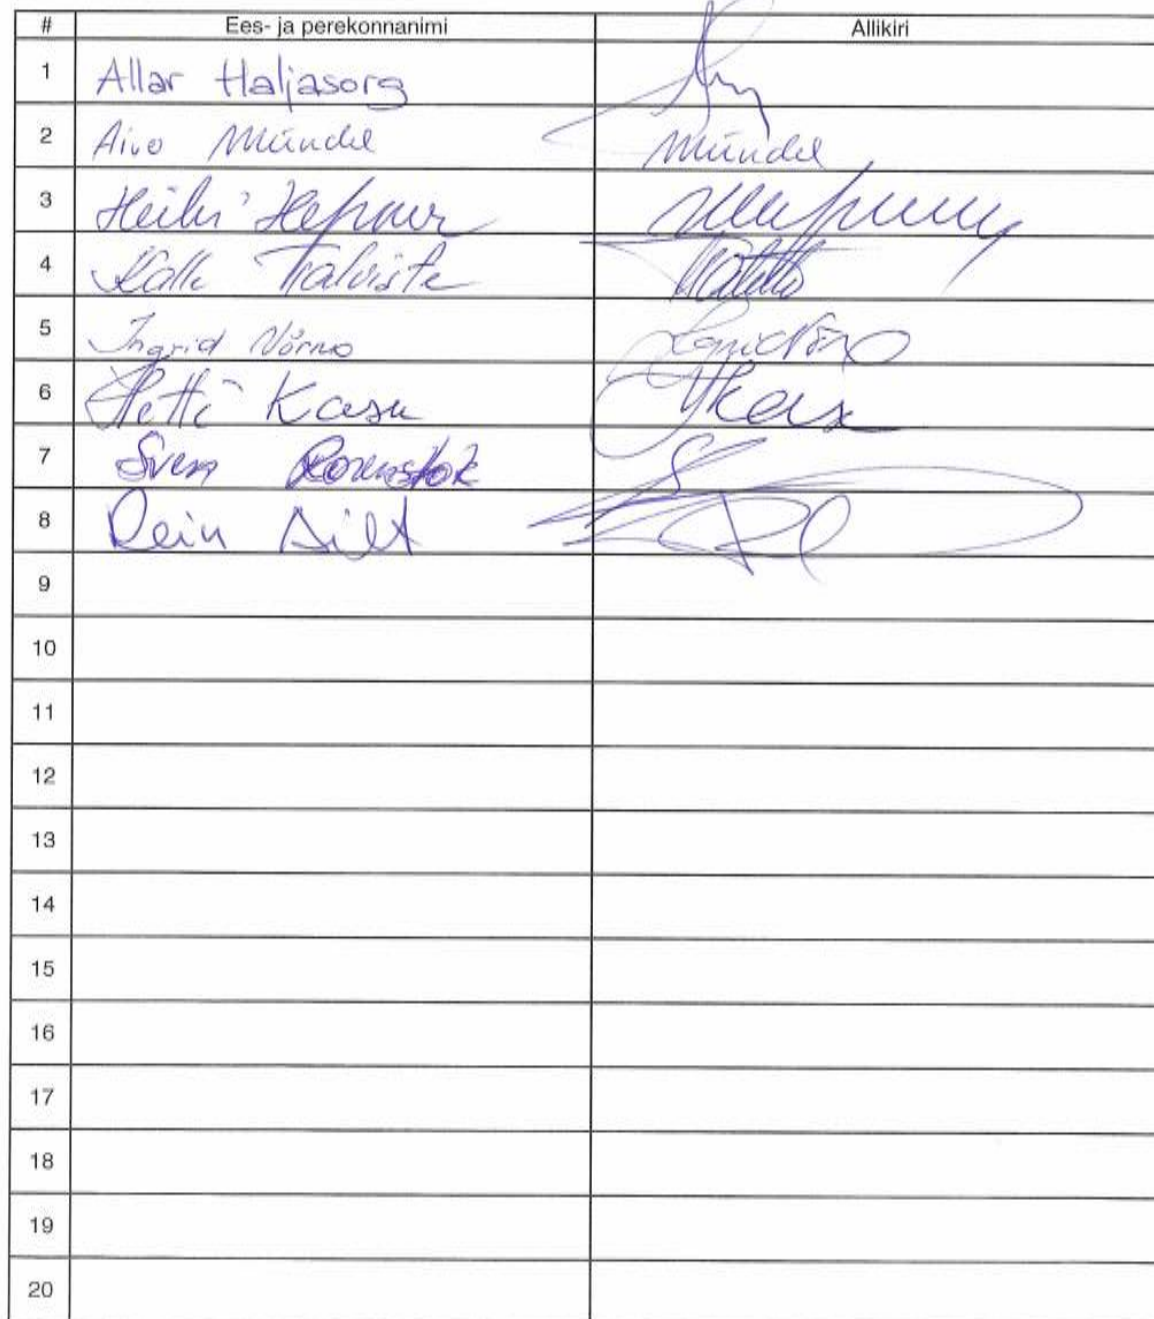 # Ees- ja perekonnanimi Allikiri
1 Allar Haljasorg
2 Aivo Mündel Mündel
3 Heiki Hepner
4 Kalle Talviste
5 Ingrid Võrno
6 Hetti Kask
7 Sven
8 Rein Silt
9
10
11
12
13
14
15
16
17
18
19
20